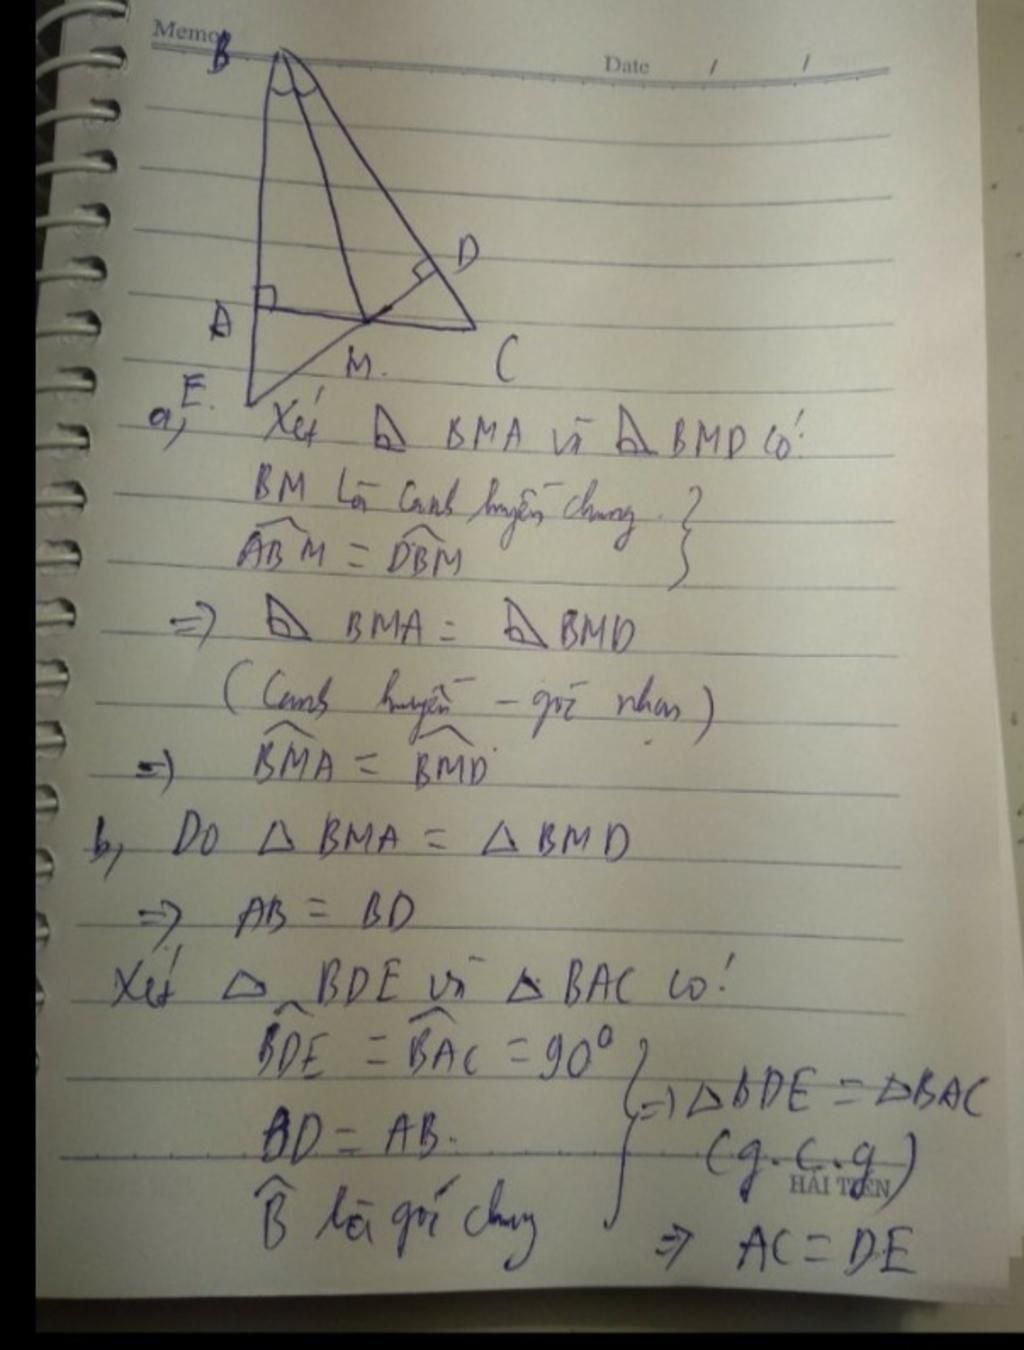 Memo
Date / /
B
D
A
M.
C
E.
a, Xét ⊿ BMA và ⊿ BMD có:
BM là cạnh huyền chung
ABM̂ = DBM̂
=> ⊿ BMA = ⊿ BMD
(Cạnh huyền - góc nhọn)
=> BMÂ = BMD̂
b, Do Δ BMA = Δ BMD
=> AB = BD
Xét Δ BDE và Δ BAC có:
BDÊ = BAĈ = 90°
BD = AB.
B̂ là góc chung
=> ΔBDE = ΔBAC
(g.c.g)
HẢI TIẾN
=> AC = DE